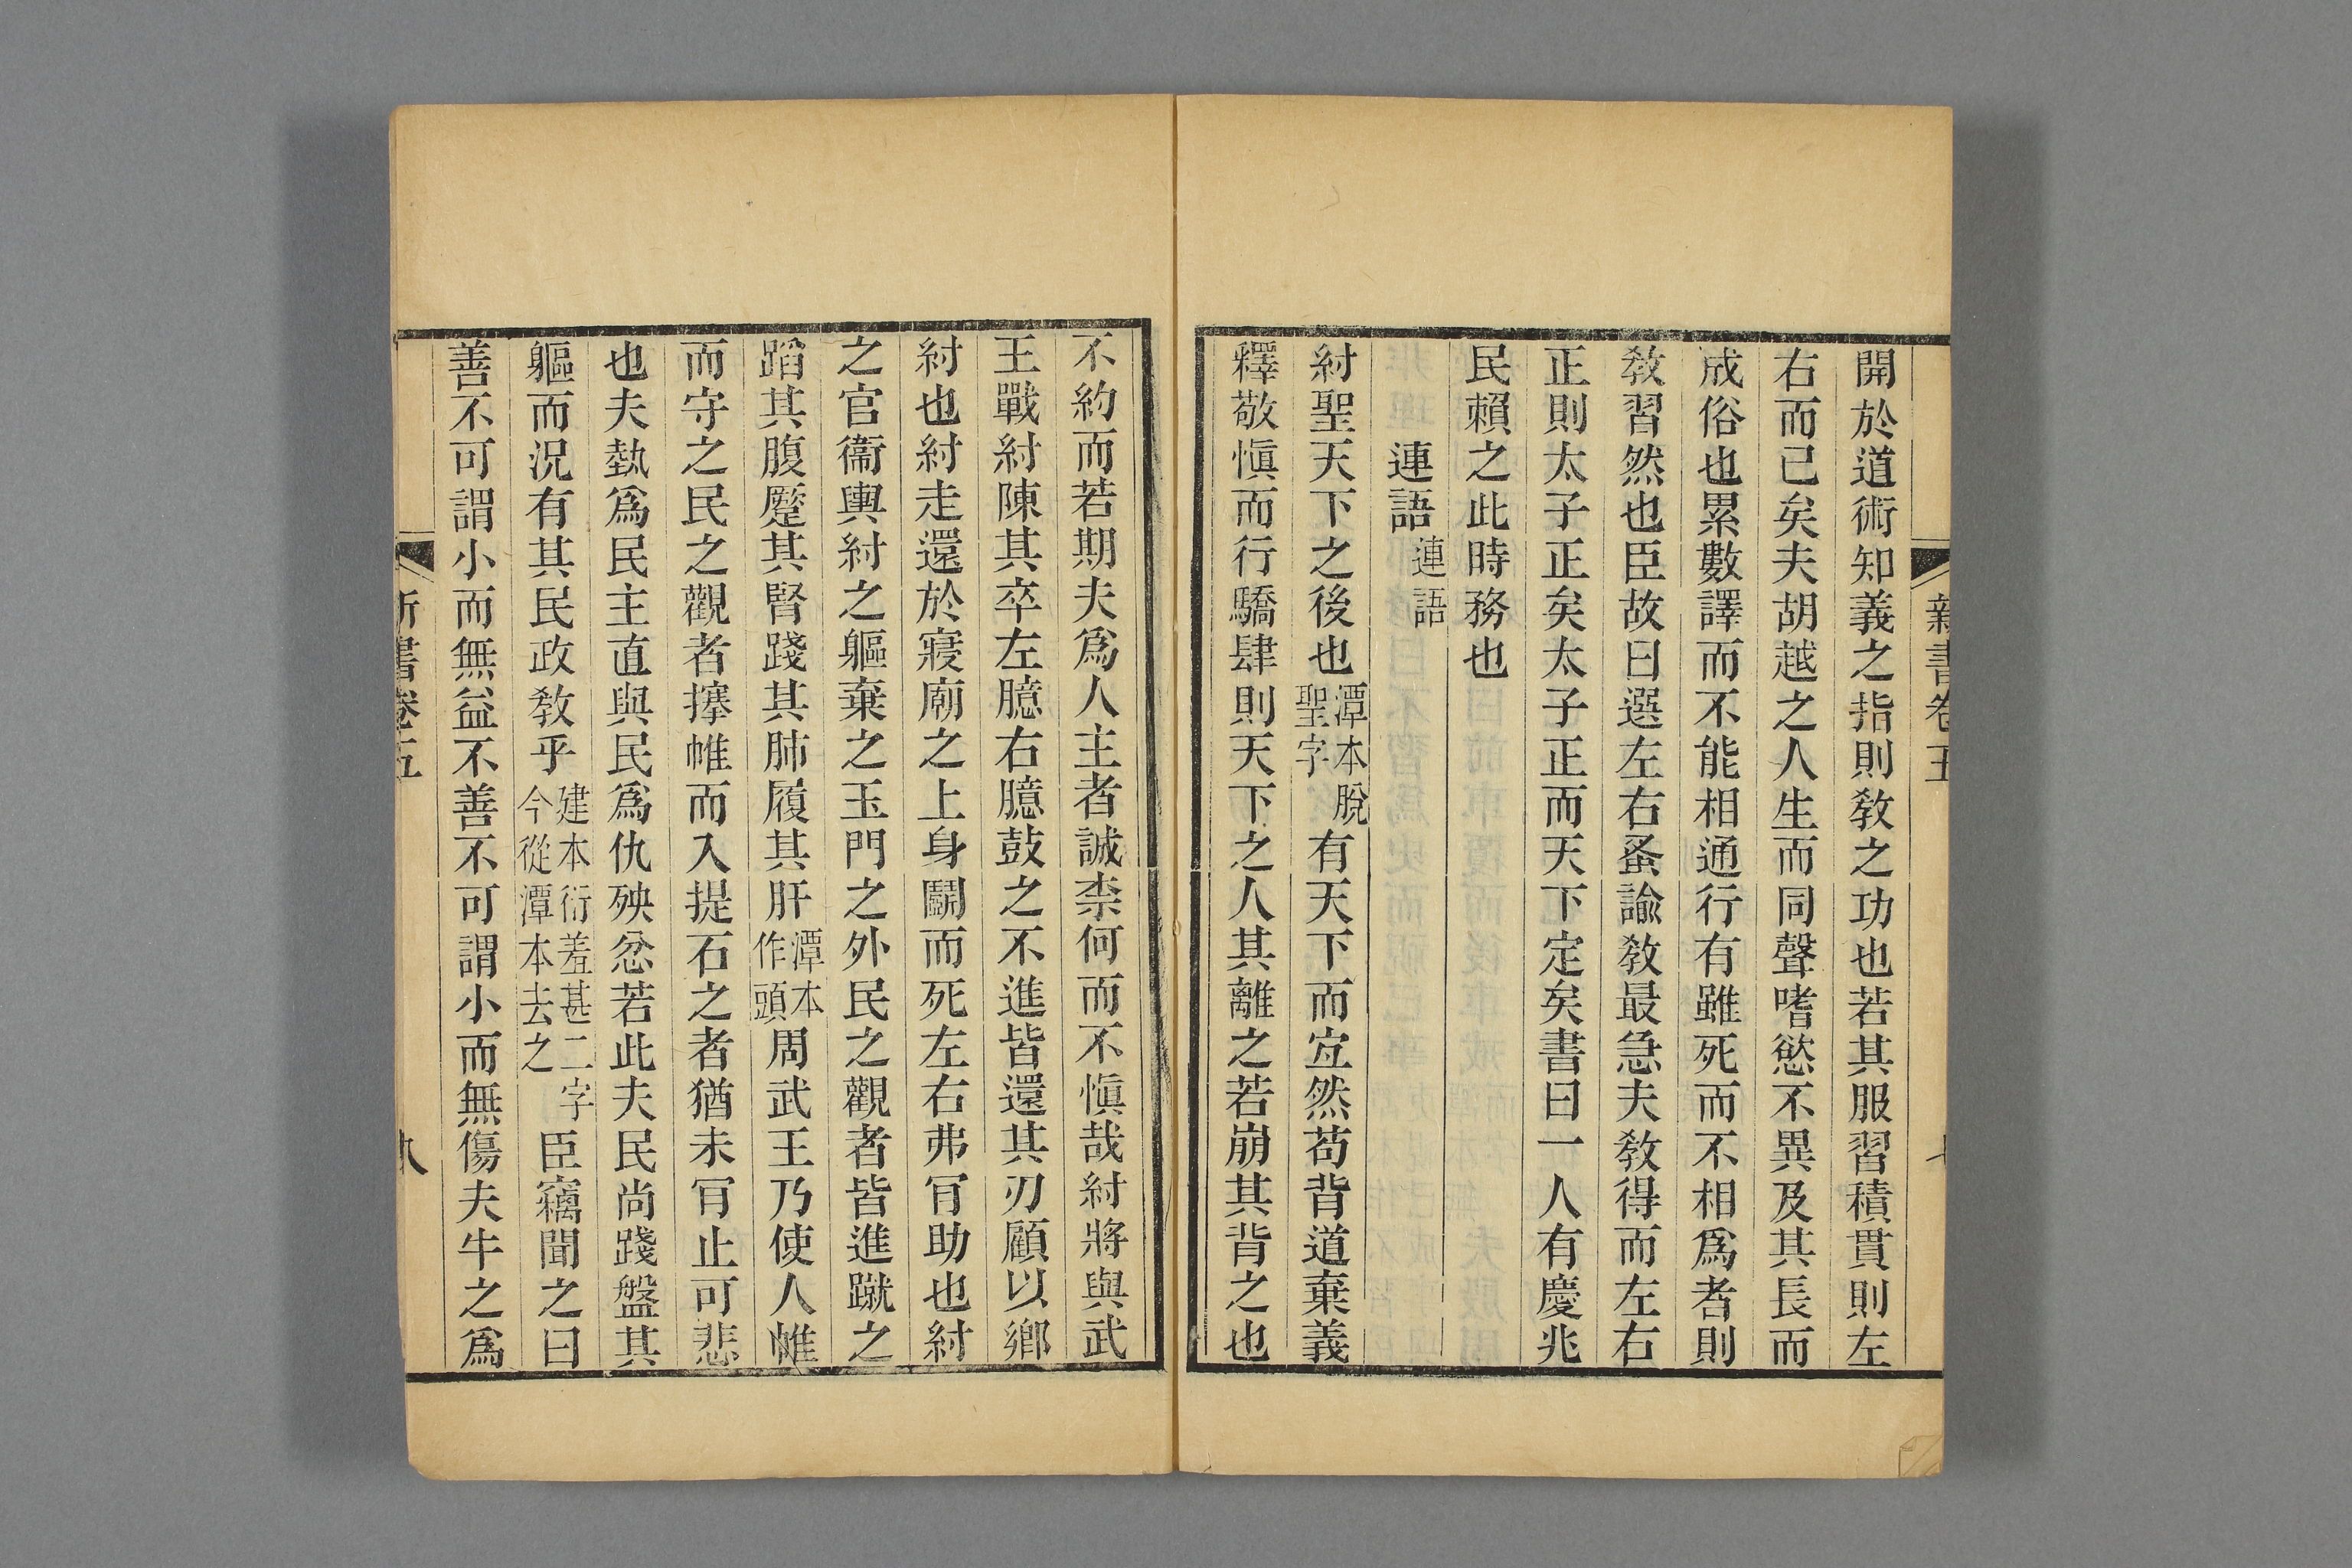 新書卷五
開於道術知義之指則敎之功也若其服習積貫則左
右而已矣夫胡越之人生而同聲嗜慾不異及其長而
成俗也累數譯而不能相通行有雖死而不相爲者則
敎習然也臣故曰選左右蚤諭敎最急夫敎得而左右
正則太子正矣太子正而天下定矣書曰一人有慶兆
民賴之此時務也
連語 連語
紂聖天下之後也 潭本脫聖字 有天下而宜然苟背道棄義
釋敬愼而行驕肆則天下之人其離之若崩其背之也
不約而若期夫爲人主者誠柰何而不愼哉紂將與武
王戰紂陳其卒左臆右臆鼓之不進皆還其刃顧以鄕
紂也紂走還於寢廟之上身鬭而死左右弗肎助也紂
之官衞輿紂之軀棄之玉門之外民之觀者皆進蹴之
蹈其腹蹷其腎踐其肺履其肝 潭本作頭 周武王乃使人帷
而守之民之觀者搴帷而入提石之者猶未肎止可悲
也夫埶爲民主直與民爲仇殃忿若此夫民尚踐盤其
軀而況有其民政敎乎 建本衍羞甚二字今從潭本去之 臣竊聞之曰
善不可謂小而無益不善不可謂小而無傷夫牛之爲
新書卷五
八